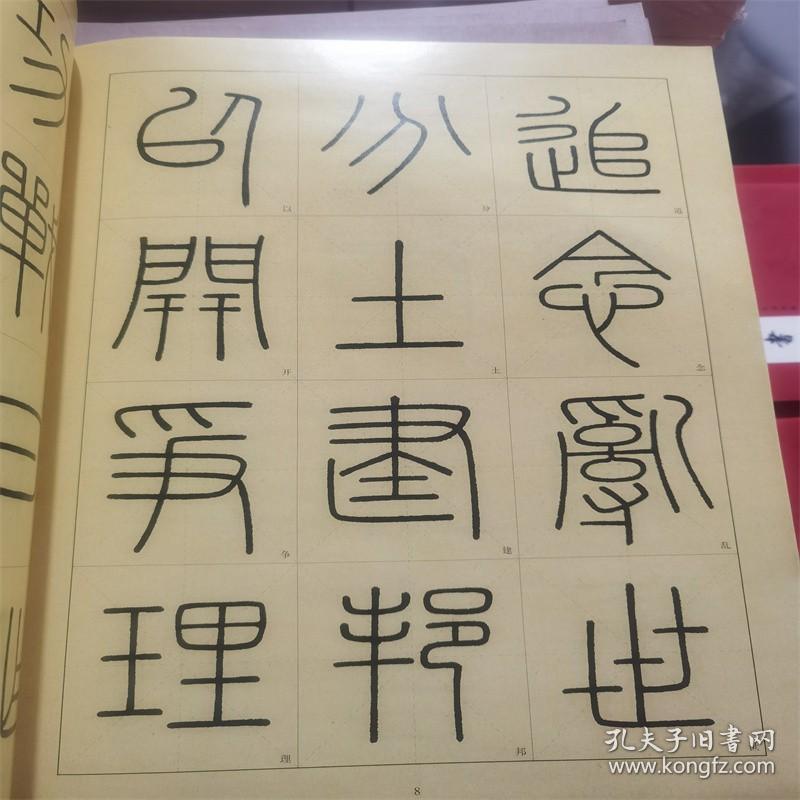 追念亂世
分土建邦
以開爭理
追
念
乱
分
土
建
邦
以
开
争
理
8
孔夫子旧书网
www.kongfz.com